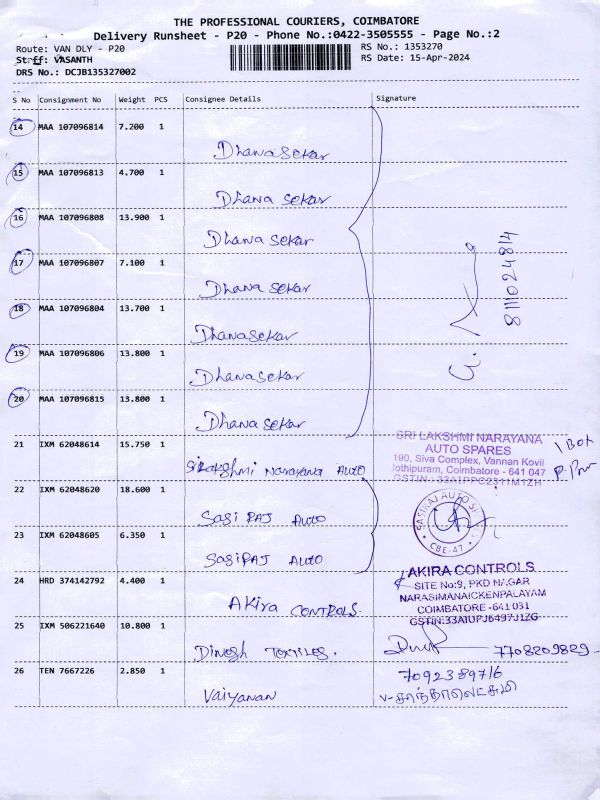 THE PROFESSIONAL COURIERS, COIMBATORE
Delivery Runsheet - P20 - Phone No.:0422-3505555 - Page No.:2
Route: VAN DLY - P20
RS No.: 1353270
Staff: VASANTH
RS Date: 15-Apr-2024
DRS No.: DCJB135327002
S No Consignment No Weight PCS Consignee Details Signature
14 MAA 107096814 7.200 1
Dhanasekar
15 MAA 107096813 4.700 1
Dhana sekar
16 MAA 107096808 13.900 1
Dhana sekar
17 MAA 107096807 7.100 1
Dhana sekar
8111024814
18 MAA 107096804 13.700 1
Dhanasekar
19 MAA 107096806 13.800 1
Dhanasekar
20 MAA 107096815 13.800 1
Dhana sekar
21 IXM 62048614 15.750 1
Narayana Auto
SRI LAKSHMI NARAYANA
AUTO SPARES
190, Siva Complex, Vannan Kovil
Jothipuram, Coimbatore - 641 047
GSTIN : 33AIPPC2311M1ZH
1 Box
22 IXM 62048620 18.600 1
Sasi RAJ Auto
23 IXM 62048605 6.350 1
SasiRAJ Auto
SASIRAJ AUTO
CBE-47
24 HRD 374142792 4.400 1
AKira CONTROLS.
AKIRA CONTROLS
SITE No:9, PKD NAGAR
NARASIMANAICKENPALAYAM
COIMBATORE -641 031
GSTIN:33AIUPJ6497J1ZG
25 IXM 506221640 10.800 1
Dinesh Textiles.
7708209829
26 TEN 7667226 2.850 1
Vaiyanan
7092389716